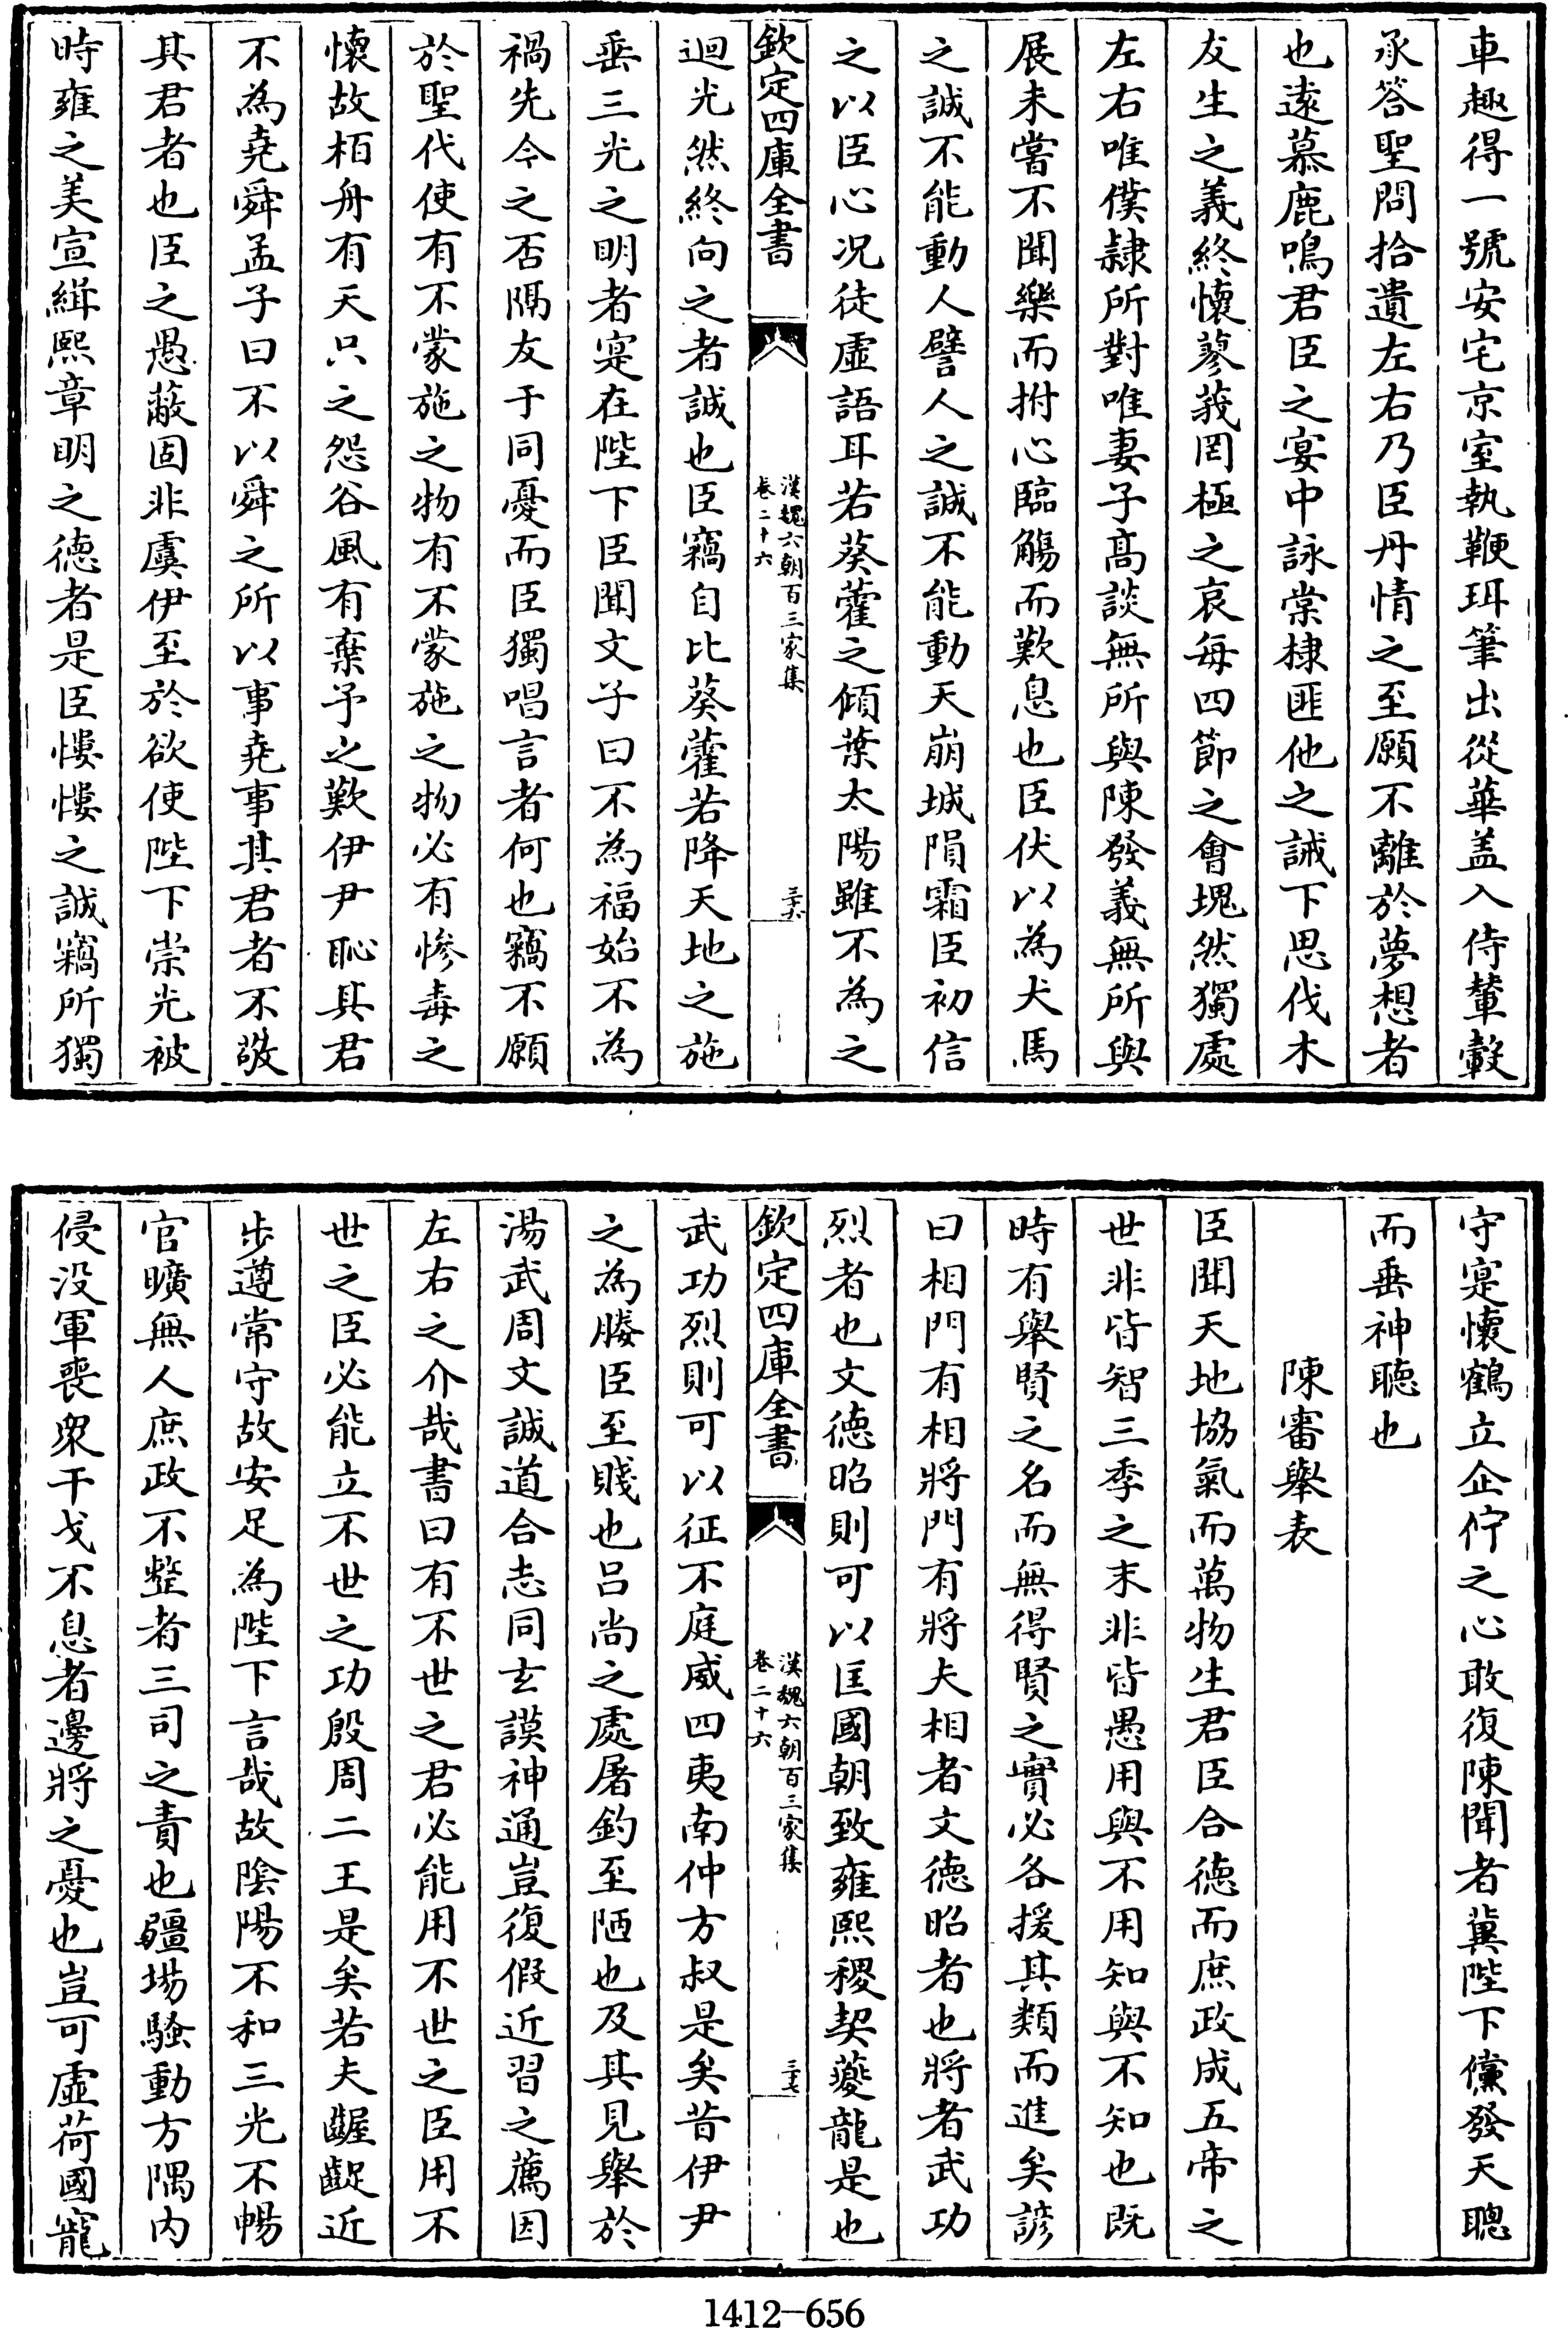 車趣得一號安宅京室執鞭珥筆出從華盖入侍輦轂
承答聖問拾遺左右乃臣丹情之至願不離於夢想者
也遠慕鹿鳴君臣之宴中詠棠棣匪他之誡下思伐木
友生之義終懷蓼莪罔極之哀每四節之會塊然獨處
左右唯僕隸所對唯妻子髙談無所與陳發義無所與
展未嘗不聞樂而拊心臨觴而歎息也臣伏以為犬馬
之誠不能動人譬人之誠不能動天崩城隕霜臣初信
之以臣心况徒虛語耳若葵藿之傾葉太陽雖不為之
欽定四庫全書
漢魏六朝百三家集
卷二十六
三十六
迴光然終向之者誠也臣竊自比葵藿若降天地之施
垂三光之明者寔在陛下臣聞文子曰不為福始不為
禍先今之否隔友于同憂而臣獨唱言者何也竊不願
於聖代使有不蒙施之物有不蒙施之物必有慘毒之
懷故栢舟有天只之怨谷風有棄予之歎伊尹恥其君
不為堯舜孟子曰不以舜之所以事堯事其君者不敬
其君者也臣之愚蔽固非虞伊至於欲使陛下崇光被
時雍之美宣緝熙章明之德者是臣慺慺之誠竊所獨
守寔懷鶴立企佇之心敢復陳聞者冀陛下儻發天聰
而垂神聽也
陳審舉表
臣聞天地協氣而萬物生君臣合德而庶政成五帝之
世非皆智三季之末非皆愚用與不用知與不知也既
時有舉賢之名而無得賢之實必各援其類而進矣諺
曰相門有相將門有將夫相者文德昭者也將者武功
烈者也文德昭則可以匡國朝致雍熙稷契夔龍是也
欽定四庫全書
漢魏六朝百三家集
卷二十六
三十七
武功烈則可以征不庭威四夷南仲方叔是矣昔伊尹
之為媵臣至賤也吕尚之處屠釣至陋也及其見舉於
湯武周文誠道合志同玄謨神通豈復假近習之薦因
左右之介哉書曰有不世之君必能用不世之臣用不
世之臣必能立不世之功殷周二王是矣若夫齷齪近
步遵常守故安足為陛下言哉故陰陽不和三光不暢
官曠無人庶政不整者三司之責也疆場騷動方隅内
侵没軍喪衆干戈不息者邊將之憂也豈可虛荷國寵
1412-656